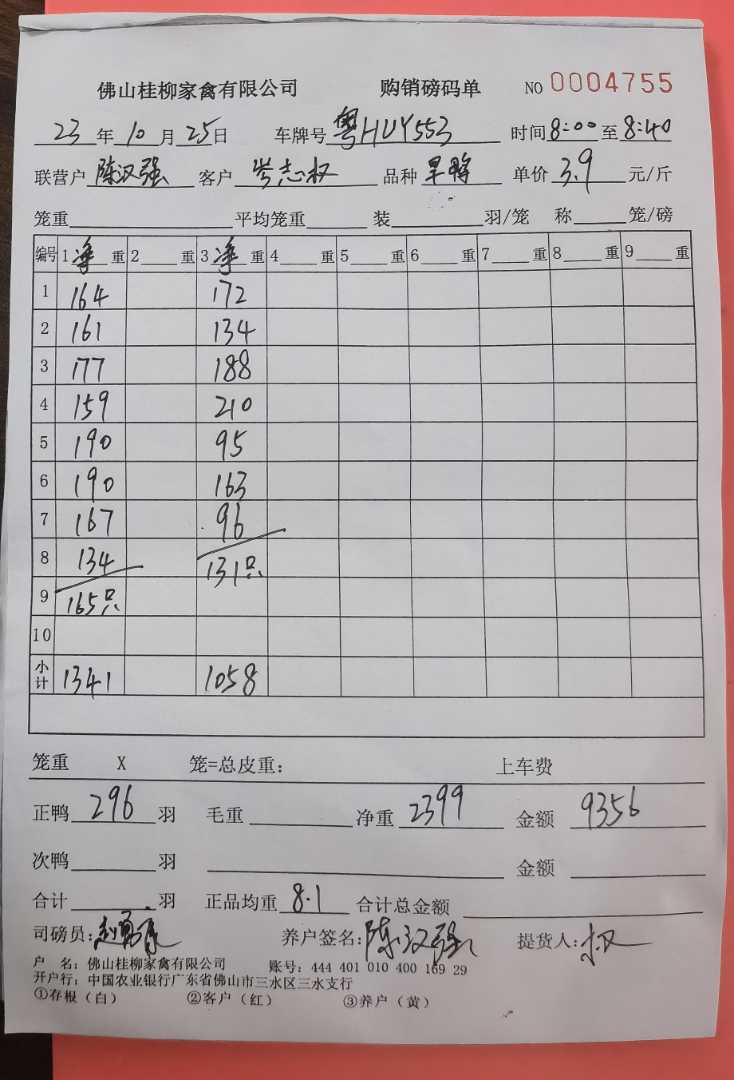 佛山桂柳家禽有限公司 购销磅码单 NO 0004755
23年10月25日 车牌号 粤HUY553 时间8:00至8:40
联营户 陈汉强 客户 岑志权 品种 旱鸭 单价 3.9 元/斤
笼重 平均笼重 装 羽/笼 称 笼/磅
编号 1净重 2 重 3净重 4 重 5 重 6 重 7 重 8 重 9 重
1 164 172
2 161 134
3 177 188
4 159 210
5 190 95
6 190 163
7 167 96
8 134 131只
9 165只
10
小计 1341 1058
笼重 X 笼=总皮重: 上车费
正鸭 296 羽 毛重 净重 2399 金额 9356
次鸭 羽 金额
合计 羽 正品均重 8.1 合计总金额
司磅员: 养户签名: 陈汉强 提货人: 权
户 名: 佛山桂柳家禽有限公司 账号: 444 401 010 400 169 29
开户行: 中国农业银行广东省佛山市三水区三水支行
①存根(白) ②客户(红) ③养户(黄)